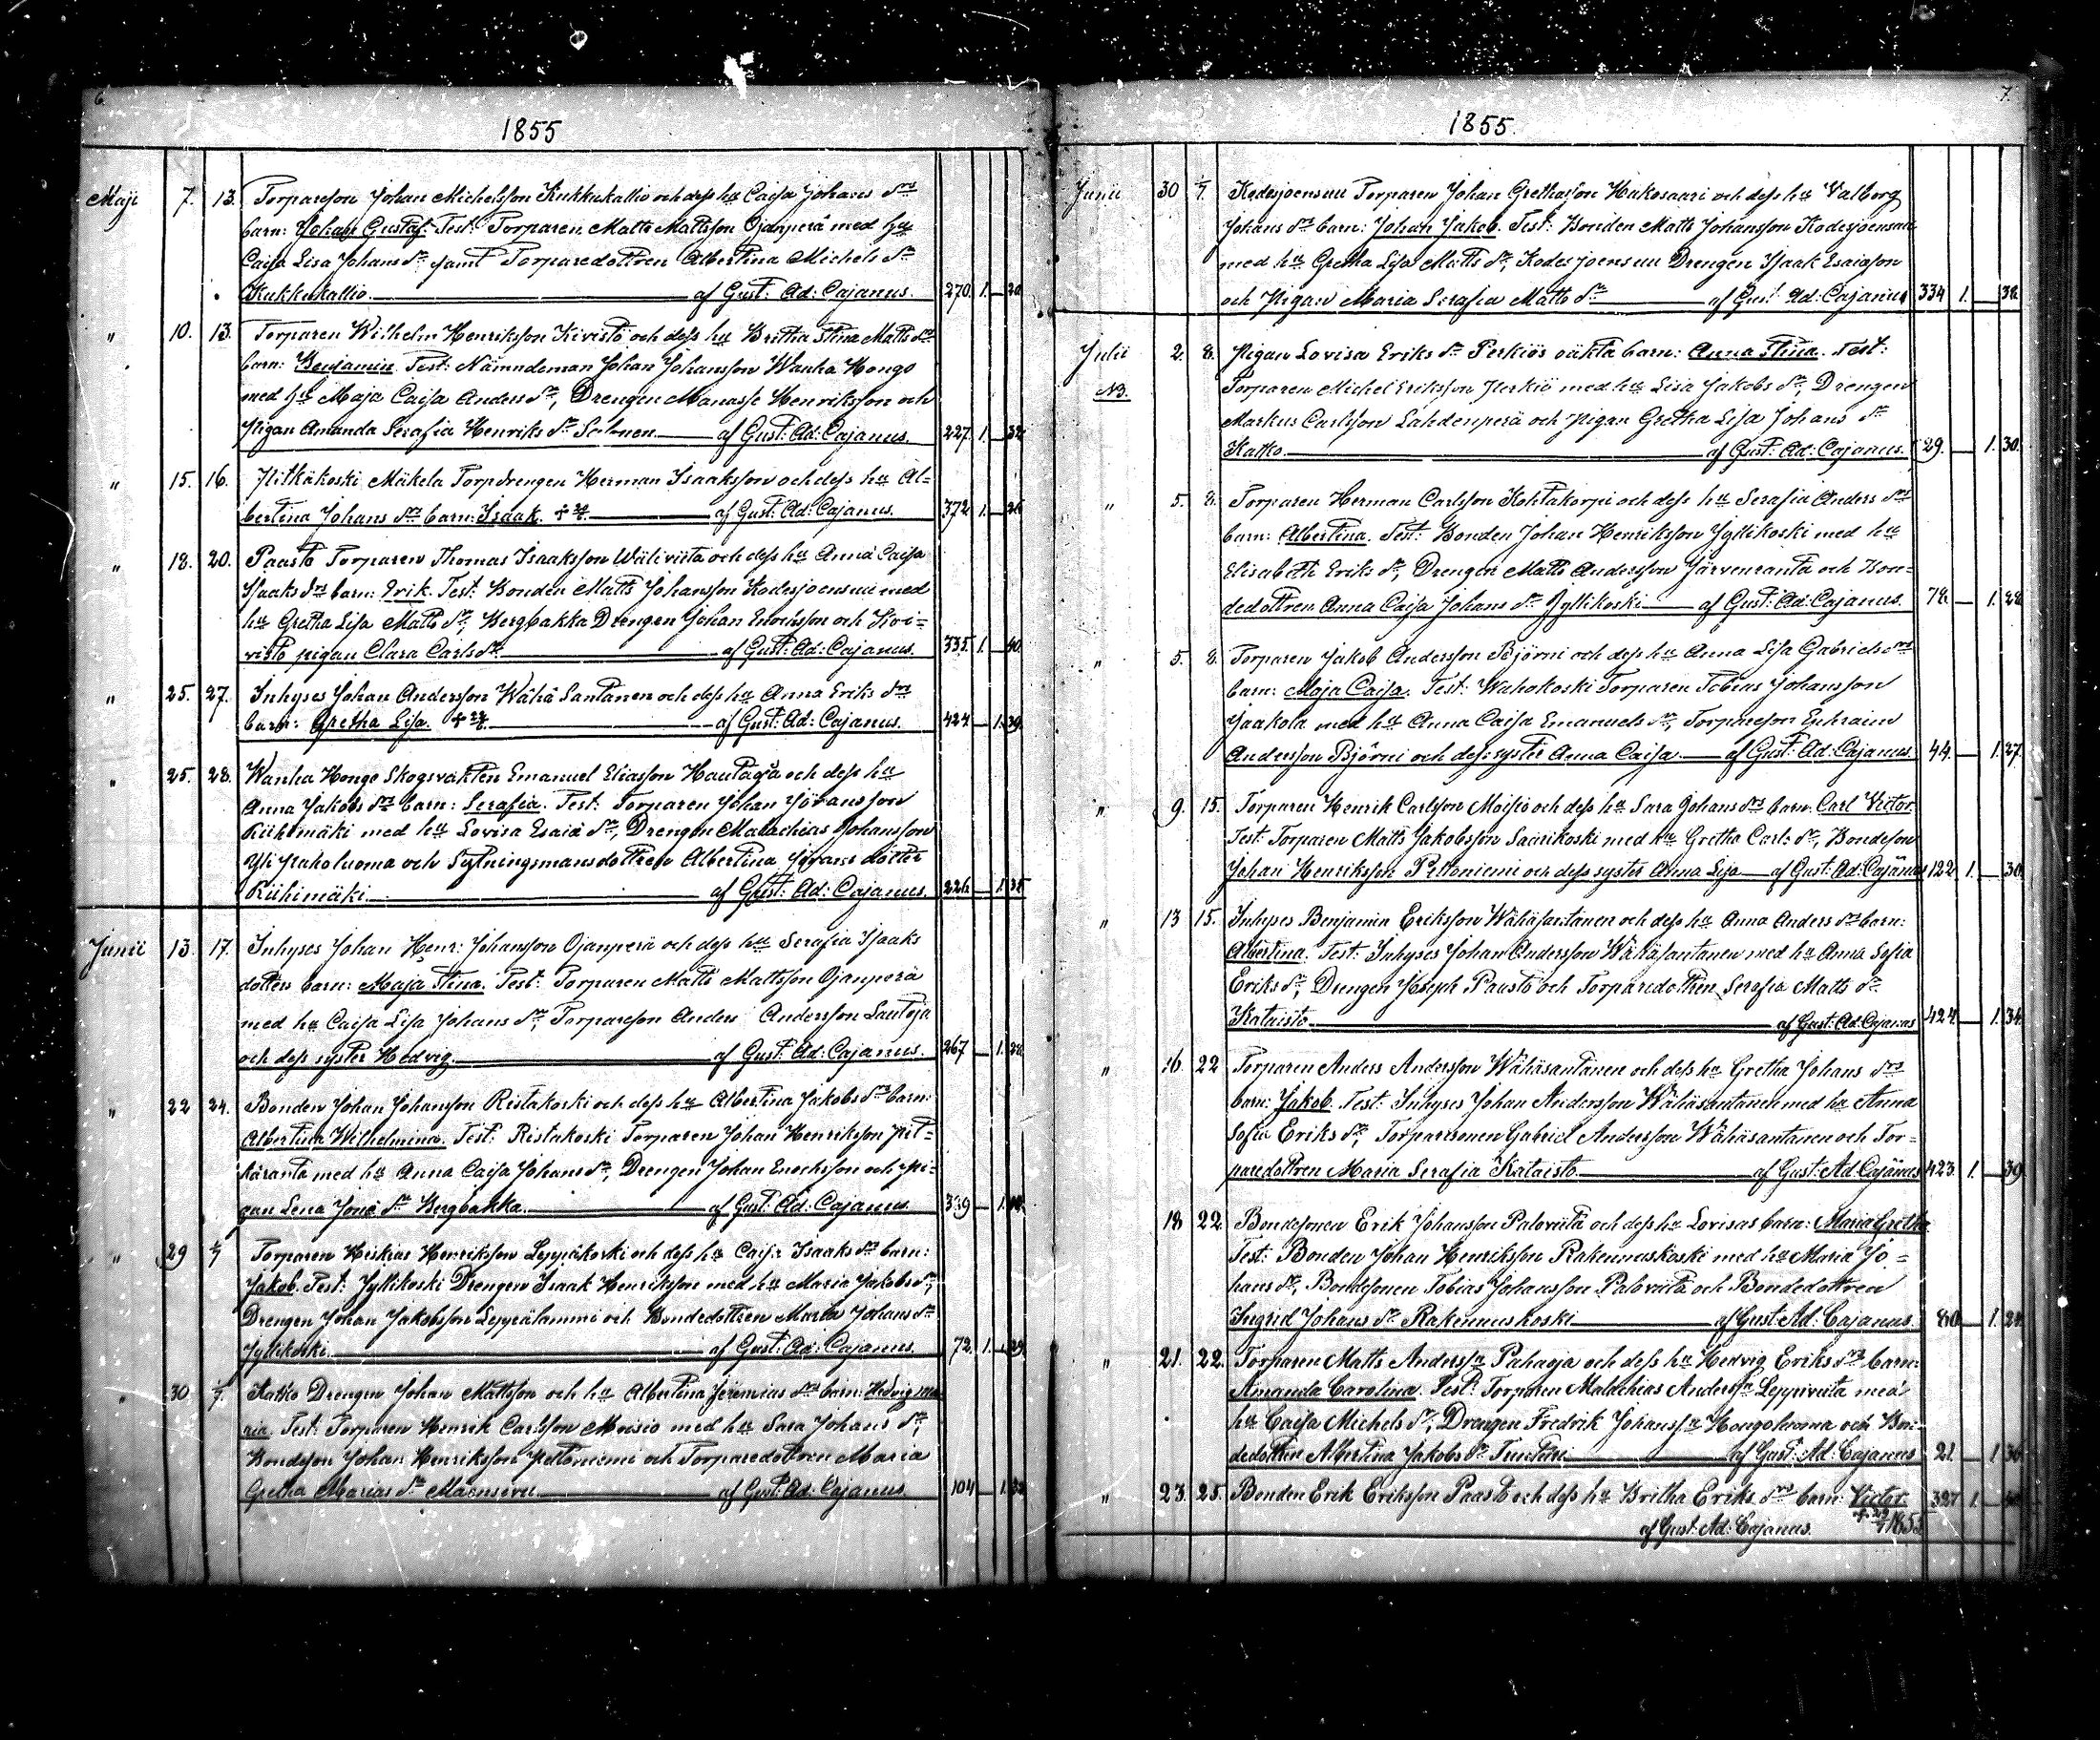 6.
1855
Maji 7. 13. Torpareson Johan Michelsson Kukkukallio och dess hu Caisa Johans drs
barn: Johan Gustaf. Test: Torparen Matts Mattsson Ojanperä med hu
Caisa Lisa Johans dr samt Torparedottren Albertina Michels dr
Kukkukallio. af Gust: Ad: Cajanus. 270. 1.
" 10. 13. Torparen Wilhelm Henriksson Kivistö och dess hu Britha Stina Matts drs
barn: Benjamin. Test: Nämndeman Johan Johansson Wanha Hongo
med hu Maja Caisa Anders dr, Drengen Manasse Henriksson och
Pigan Amanda Serafia Henriks dr af Gust: Ad: Cajanus. 227. 1. 32
" 15. 16. Pitkäkoski Mäkelä Torpdrengen Herman Isaaksson och dess hu Al=
bertina Johans drs barn: Isaak. af Gust: Ad: Cajanus. 372 1. 26
" 18. 20. Paasto Torparen Thomas Isaaksson Wäliviita och dess hu Anna Caisa
Isaaks drs barn: Erik. Test: Bonden Matts Johansson Kodesjoensuu med
hu Gretha Lisa Matts dr, Bergbakka Drengen Johan Enochsson och Koi=
visto pigan Clara Carls dr. af Gust: Ad: Cajanus. 335. 1. 40.
" 25. 27. Inhyses Johan Andersson Wähä Santanen och dess hu Anna Eriks drs
barn: Gretha Lisa. af Gust: Ad: Cajanus. 424 1. 39.
" 25. 28. Wanha Hongo Skogsvakten Emanuel Eliasson Hautaoja och dess hu
Anna Jakobs drs barn: Serafia. Test: Torparen Johan Jöransson
Riihimäki med hu Lovisa Esaiæ dr, Drengen Malachias Johansson
Yli Paholuoma och Sytningsmansdottren Albertina Jörans dotter
Riihimäki. af Gust: Ad: Cajanus. 226. 1.
Junii 13. 17. Inhyses Johan Henr: Johansson Ojanperä och dess hu Serafia Isaaks
dotters barn: Maja Stina. Test: Torparen Matts Mattsson Ojanperä
med hu Caisa Lisa Johans dr, Torpareson Anders Andersson Lautoja
och dess syster Hedvig. af Gust: Ad: Cajanus. 267 1. 28.
" 22 24. Bonden Johan Johansson Ristakoski och dess hu Albertina Jakobs drs barn:
Albertina Wilhelmina. Test: Ristakoski Torparen Johan Henriksson Pit=
käranta med hu Anna Caisa Johans dr, Drengen Johan Enochsson och Pi=
gan Lena Jonæ dr Bergbakka. af Gust: Ad: Cajanus 339 1.
" 29 1/7 Torparen Heskias Henriksson Leppäkoski och dess hu Caisa Isaaks drs barn:
Jakob. Test: Jyllikoski Drengen Isaak Henriksson med hu Maria Jakobs dr,
Drengen Johan Jakobsson Leppälammi och Bondedottren Maria Johans dr
Jyllikoski. af Gust: Ad: Cajanus. 72. 1. 29.
" 30 1/7. Katko Drengen Johan Mattsson och hu Albertina Jeremias drs barn: Hedvig Ma
ria. Test: Torparen Henrik Carlsson Moisio med hu Sara Johans dr,
Bondeson Johan Henriksson Peltoniemi och Torparedottren Maria
Gretha Marias dr Maensivu. af Gust: Ad: Cajanus. 104 1.
7.
1855.
Junii 30 1/7. Kodesjoensuu Torparen Johan Grethasson Hakosaari och dess hu Valborg
Johans drs barn: Johan Jakob. Test: Bonden Matts Johansson Kodesjoensuu
med hu Gretha Lisa Matts dr, Kodesjoensuu Drengen Isaak Esaiasson
och Pigan Maria Serafia Matts dr af Gust: Ad: Cajanus 334 1. 38.
Julii 2. 8. Pigan Lovisa Eriks dr Perkiös oäkta barn: Anna Stina. Test:
NB. Torparen Michel Eriksson Perkiö med hu Lisa Jakobs dr, Drengen
Markus Carlsson Lähdenperä och Pigan Gretha Lisa Johans dr
Katko. af Gust: Ad: Cajanus. 29. 1. 30.
" 5. 8. Torparen Herman Carlsson Kohtakorpi och dess hu Serafia Anders drs
barn: Albertina. Test: Bonden Johan Henriksson Jyllikoski med hu
Elisabeth Eriks dr, Drengen Matts Andersson Järvenranta och Bon=
dedottren Anna Caisa Johans dr Jyllikoski af Gust: Ad: Cajanus. 78. 1. 28
" 5. 8. Torparen Jakob Andersson Björni och dess hu Anna Lisa Gabriels drs
barn: Maja Caisa. Test: Wahokoski Torparen Tobias Johansson
Jaakola med hu Anna Caisa Emanuels dr, Torpareson Ephraim
Andersson Björni och dess syster Anna Caisa. af Gust: Ad: Cajanus. 44. 1. 27.
" 9. 15. Torparen Henrik Carlsson Moisio och dess hu Sara Johans drs barn: Carl Victor.
Test: Torparen Matts Jakobsson Saarikoski med hu Gretha Carls dr, Bondeson
Johan Henriksson Peltoniemi och dess syster Anna Lisa af Gust: Ad: Cajanus 122 1. 30
" 13 15. Inhyses Benjamin Eriksson Wähäsantanen och dess hu Anna Anders drs barn:
Albertina. Test: Inhyses Johan Andersson Wähäsantanen med hu Anna Sofia
Eriks dr, Drengen Joseph Paasto och Torparedottren Serafia Matts dr
Kataisto. af Gust: Ad: Cajanus 424. 1. 34.
" 16. 22 Torparen Anders Andersson Wähäsantanen och dess hu Gretha Johans drs
barn: Jakob. Test: Inhyses Johan Andersson Wähäsantanen med hu Anna
Sofia Eriks dr, Torparesonen Gabriel Andersson Wähäsantanen och Tor=
paredottren Maria Serafia Kataisto. af Gust: Ad: Cajanus 423. 1. 39
18 22. Bondesonen Erik Johansson Paloviita och dess hu Lovisas barn: Maria Gretha.
Test: Bonden Johan Henriksson Rakennuskoski med hu Maria Jo=
hans dr, Bondesonen Tobias Johansson Paloviita och Bondedottren
Ingrid Johans dr Rakennuskoski af Gust: Ad: Cajanus. 80 1. 24.
" 21. 22. Torparen Matts Anderssn Pahaoja och dess hu Hedvig Eriks drs barn:
Amanda Carolina. Test: Torparen Malachias Anderssn Leppiviita med
hu Caisa Michels dr, Drengen Fredrik Johanssn Hongoluoma och Bon=
dedottren Albertina Jakobs dr Tunturi af Gust: Ad: Cajanus 21. 1 36
" 23. 25. Bonden Erik Eriksson Paasto och dess hu Britha Eriks drs barn: Victor. 327 1.
af Gust: Ad: Cajanus. 1855